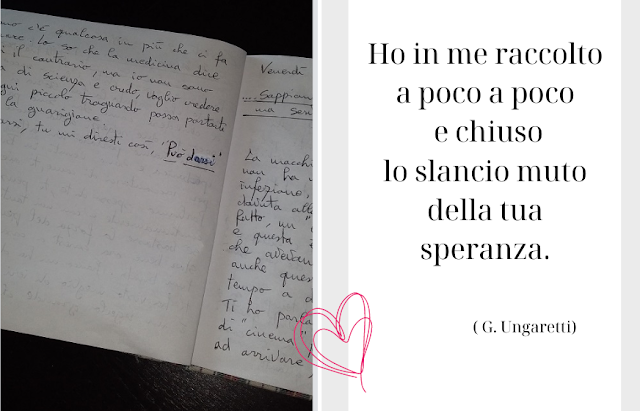 c'è qualcosa in più che ci fa
Lo so che la medicina dice
il contrario, ma io non sono
di scienza e credo, voglio credere
piccolo traguardo possa portarti
la guarigione
tu mi diresti così, "Può darsi"
Venerdì
....Sappiamo
ma sen
La macchi
non ha
infezione,
dovuta all
fatto, un
e questa
che avevan
anche ques
tempo a d
Ti ho par
di "cinema"
ad arrivare,
Ho in me raccolto
a poco a poco
e chiuso
lo slancio muto
della tua
speranza.
( G. Ungaretti)